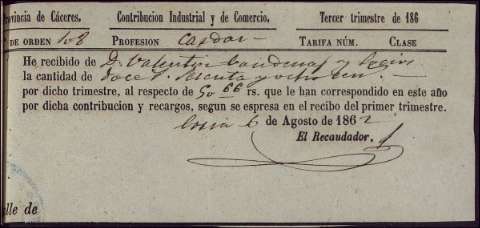 rovincia de Cáceres. Contribucion Industrial y de Comercio. Tercer trimestre de 186
DE ORDEN 108 PROFESION Cardor TARIFA NÚM. CLASE
He recibido de D. Valentin y
la cantidad de doce r. sesenta y ocho cen.
por dicho trimestre, al respecto de 50 66 rs. que le han correspondido en este año
por dicha contribucion y recargos, segun se espresa en el recibo del primer trimestre.
Coria 6 de Agosto de 1862
El Recaudador.
lle de